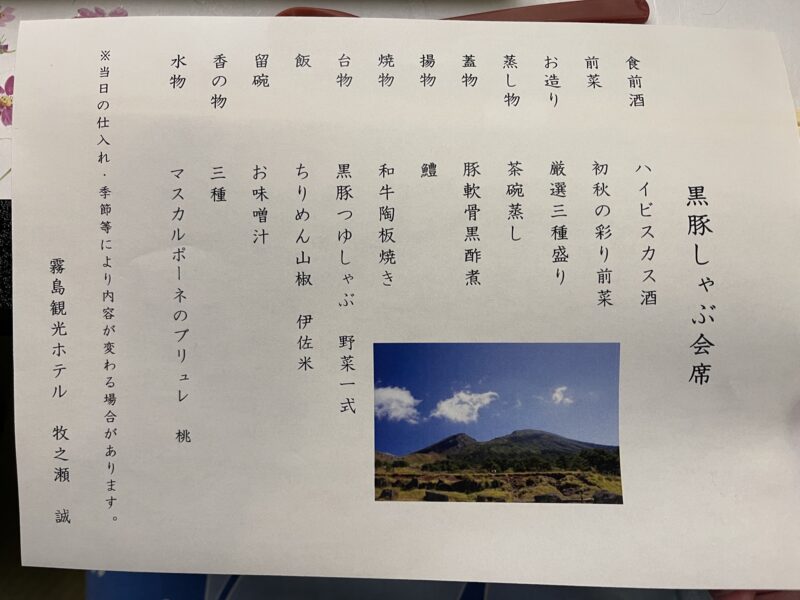 黒豚しゃぶ会席
食前酒 ハイビスカス酒
前菜 初秋の彩り前菜
お造り 厳選三種盛り
蒸し物 茶碗蒸し
蓋物 豚軟骨黒酢煮
揚物 鱧
焼物 和牛陶板焼き
台物 黒豚つゆしゃぶ 野菜一式
飯 ちりめん山椒 伊佐米
留碗 お味噌汁
香の物 三種
水物 マスカルポーネのブリュレ 桃
※当日の仕入れ・季節等により内容が変わる場合があります。
霧島観光ホテル 牧之瀬 誠